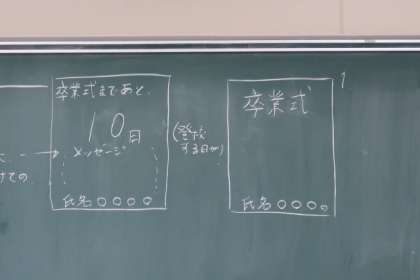 卒業式まであと、
10日
メッセージ
氏名○○○○
(登校
する日が)
卒業式
氏名○○○○
1
けての